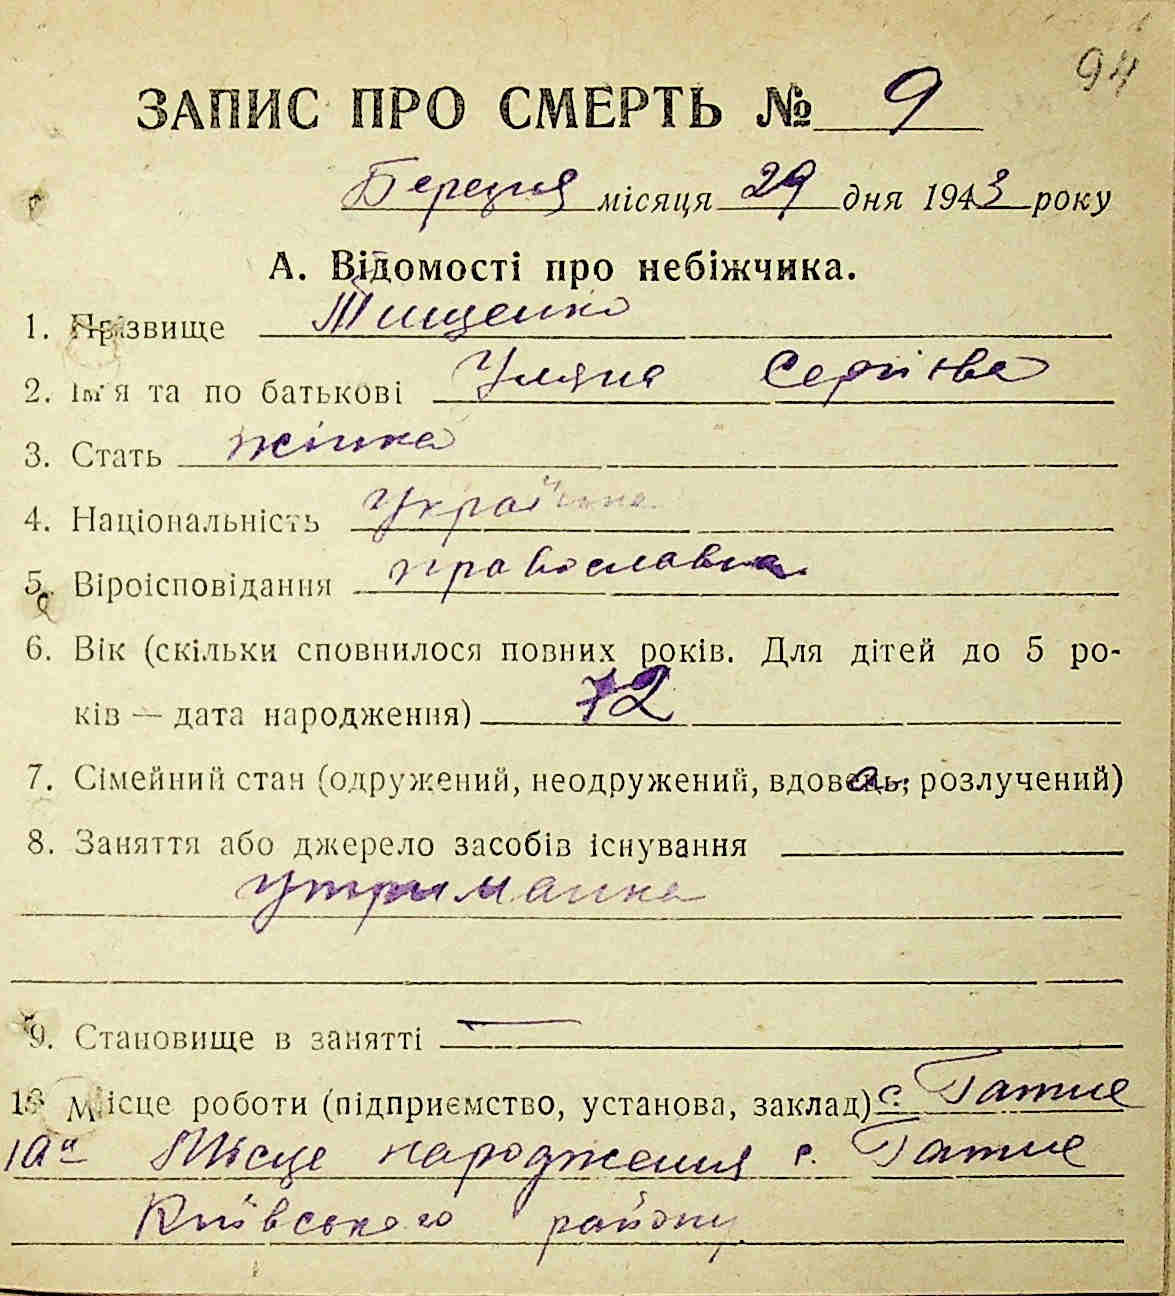 94
ЗАПИС ПРО СМЕРТЬ № 9
Березня місяця 29 дня 1943 року
А. Відомості про небіжчика.
1. Прізвище Тищенко
2. Ім'я та по батькові Уляна Сергіївна
3. Стать жінка
4. Національність українка
5. Віроісповідання православна
6. Вік (скільки сповнилося повних років. Для дітей до 5 ро-
ків — дата народження) 72
7. Сімейний стан (одружений, неодружений, вдова, розлучений)
8. Заняття або джерело засобів існування
утриманка
9. Становище в занятті —
10 Місце роботи (підприємство, установа, заклад) с. Гатне
10а Місце народження с. Гатне
Київського району